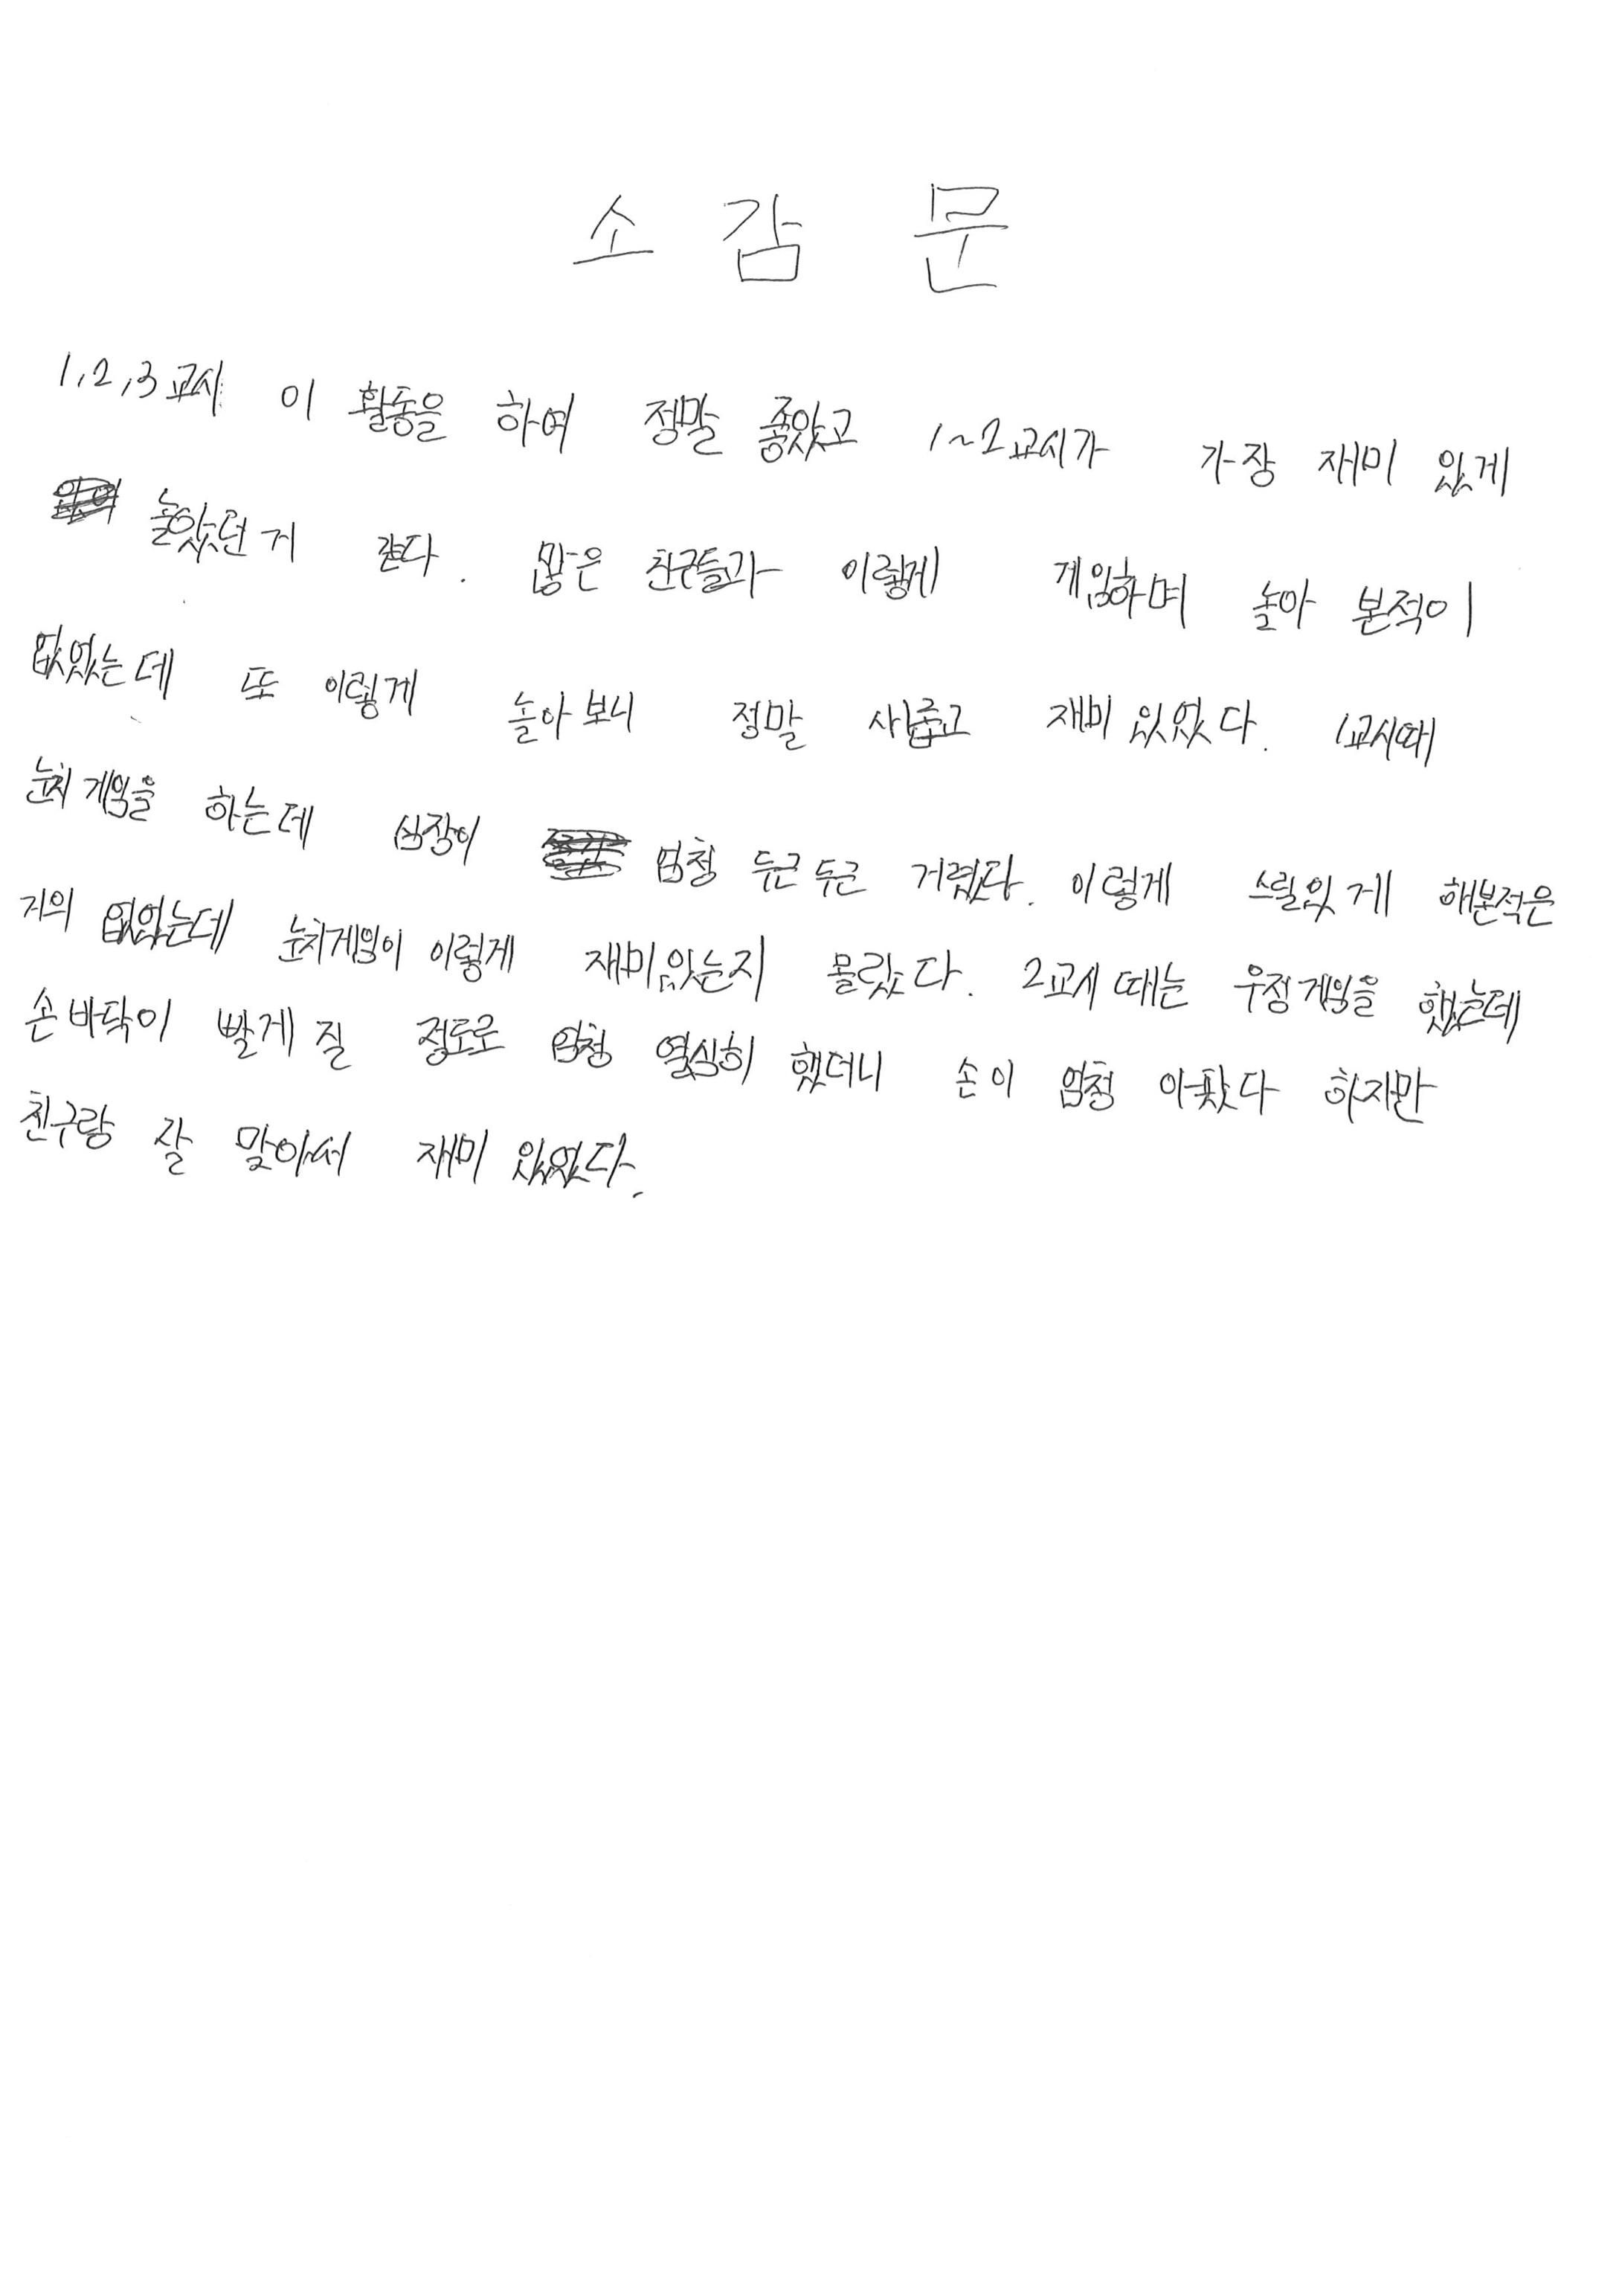 소감문
1,2,3교시 이 활동을 하여 정말 좋았고 1~2교시가 가장 재미 있게
놀았던거 같다. 많은 친구들과 이렇게 게임하며 놀아 본적이
없었는데 또 이렇게 놀아보니 정말 새롭고 재미있었다. 1교시때
눈치게임을 하는데 심장이 엄청 두근두근 거렸다. 이렇게 스릴있게 해본적은
거의 없었는데 눈치게임이 이렇게 재미있는지 몰랐다. 2교시때는 우정게임을 했는데
손바닥이 빨게질 정도로 엄청 열심히 했더니 손이 엄청 아팠다 하지만
친구랑 잘 맞아서 재미 있었다.